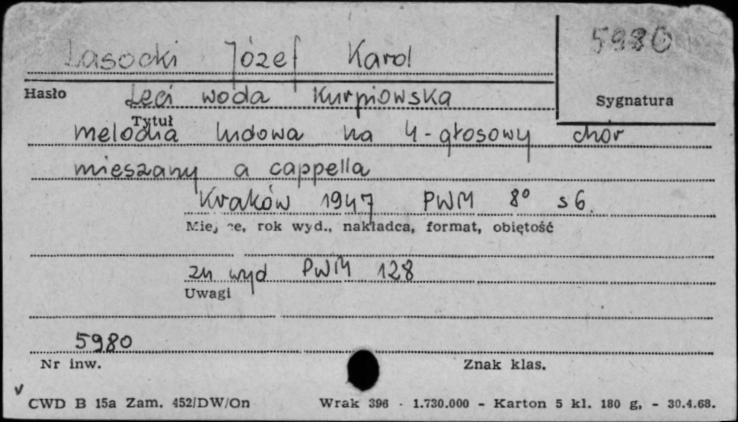 Lasocki Józef Karol
5980
Hasło
Leci woda Kurpiowska
Sygnatura
Tytuł
melodia ludowa na 4-głosowy chór
mieszany a cappella
Kraków 1947 PWM 8° s 6.
Miejsce, rok wyd., nakładca, format, objętość
zn wyd PWM 128
Uwagi
5980
Nr inw.
Znak klas.
CWD B 15a Zam. 452/DW/On Wrak 396 - 1.730.000 - Karton 5 kl. 180 g. - 30.4.68.